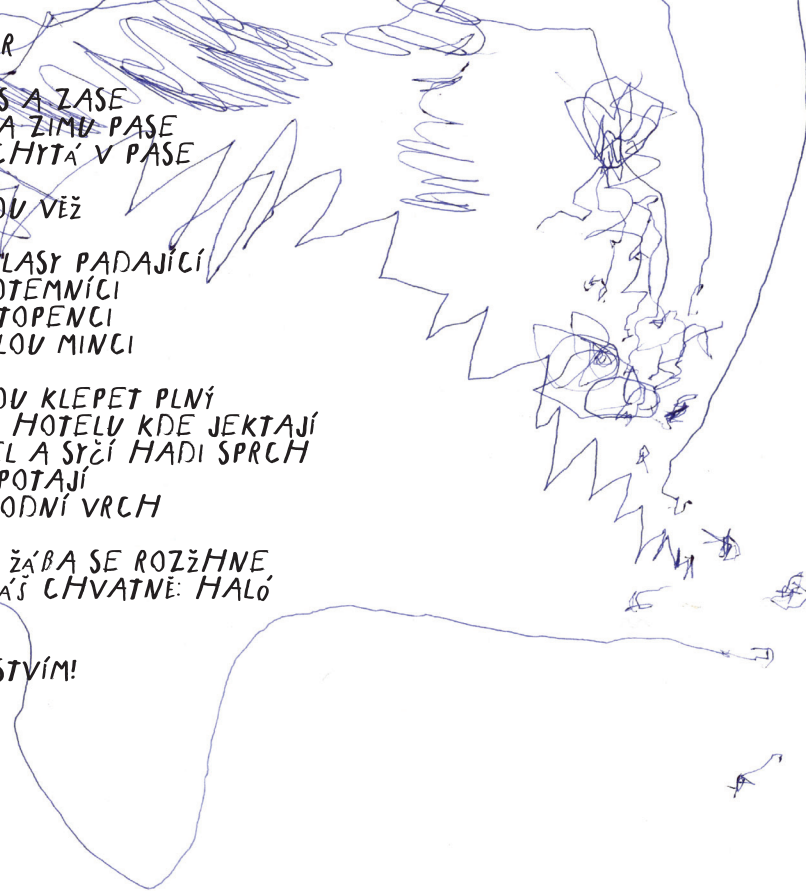 R
S A ZASE
A ZIMU PASE
CHYTÁ V PASE
OU VĚŽ
LASY PADAJÍCÍ
OTEMNÍCI
TOPENCI
LOU MINCI
OU KLEPET PLNÝ
HOTELU KDE JEKTAJÍ
EL A SYČÍ HADI SPRCH
POTAJÍ
ODNÍ VRCH
ŽÁBA SE ROZŽHNE
ÁŠ CHVATNĚ: HALÓ
STVÍM!